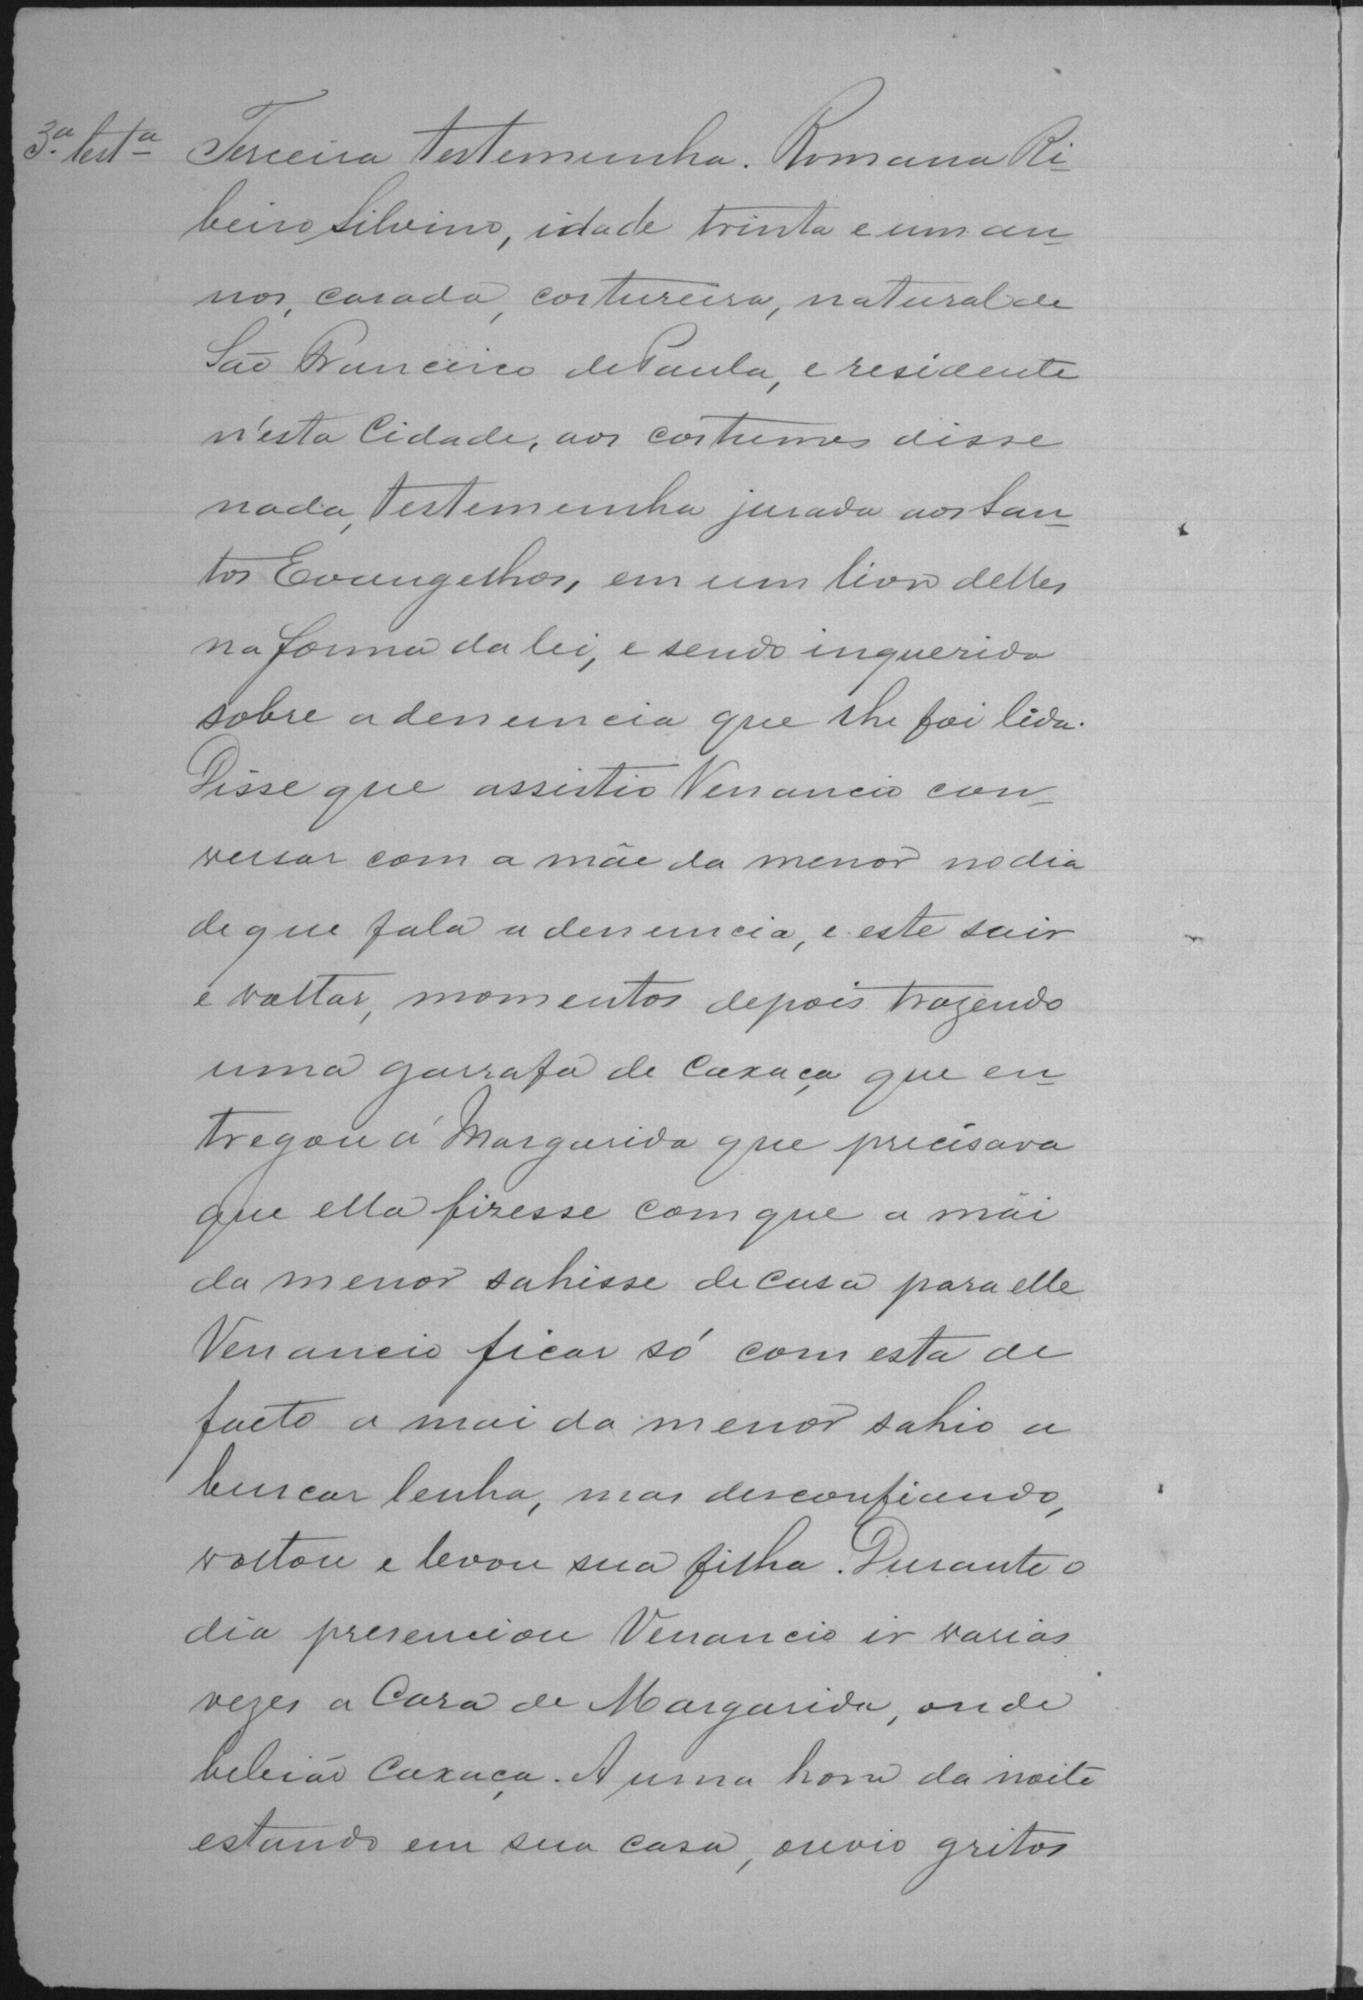 3.ª testª Terceira testemunha. Romana Ri-
beiro Silvino, idade trinta e um an-
nos, casada, costureira, natural de
São Francisco de Paula, e residente
n'esta Cidade, aos costumes disse
nada, testemunha jurada aos San-
tos Evangelhos, em um livro delles
na forma da lei, e sendo inquerida
sobre a denuncia que lhe foi lida.
Disse que assistio Venancio con-
versar com a mãe da menor no dia
de que fala a denuncia, e este sair
e voltar, momentos depois trazendo
uma garrafa de Caxaça que en-
tregou á Margarida que precisava
que ella fizesse com que a mãi
da menor sahisse de casa para elle
Venancio ficar só com esta de
facto a mai da menor sahio a
buscar lenha, mas desconfiando,
voltou e levou sua filha. Durante o
dia presenciou Venancio ir varias
vezes a Casa de Margarida, onde
bebião Caxaça. A uma hora da noite
estando em sua casa, ouvio gritos